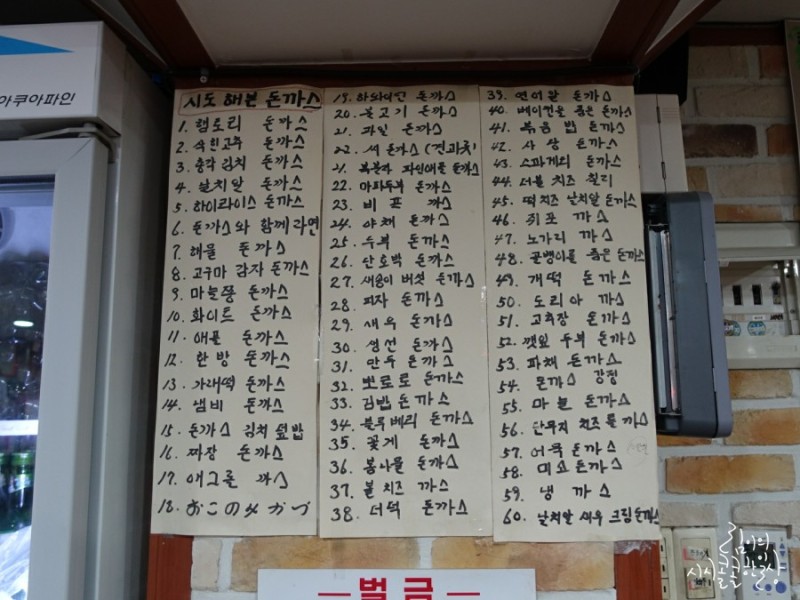 아쿠아파인
시도 해본 돈까스
1. 햄토리 돈까스
2. 숙인고추 돈까스
3. 총각김치 돈까스
4. 날치알 돈까스
5. 하이라이스 돈까스
6. 돈까스와 함께 라면
7. 해물 돈까스
8. 고구마 감자 돈까스
9. 마늘쫑 돈까스
10. 화이트 돈까스
11. 애플 돈까스
12. 한방 돈까스
13. 가래떡 돈까스
14. 냄비 돈까스
15. 돈까스 김치 덮밥
16. 짜장 돈까스
17. 애그론 까스
18. おこのみかつ
19. 하와이언 돈까스
20. 불고기 돈까스
21. 파일 돈까스
22. 씨 돈까스 (견과치
21. 복분자 파인애플 돈까스
22. 마파두부 돈까스
23. 비프 까스
24. 야채 돈까스
25. 두부 돈까스
26. 단호박 돈까스
27. 새송이 버섯 돈까스
28. 피자 돈까스
29. 새우 돈까스
30. 생선 돈까스
31. 만두 돈까스
32. 뽀로로 돈까스
33. 김밥 돈까스
34. 블루베리 돈까스
35. 꽃게 돈까스
36. 봉나물 돈까스
37. 볼 치즈 까스
38. 더덕 돈까스
39. 연어알 돈까스
40. 베이컨을 품은 돈까스
41. 볶음밥 돈까스
42. 사상 돈까스
43. 스파게리 돈까스
44. 더블 치즈 칠리
45. 떡치즈 날치알 돈까스
46. 쥐포 까스
47. 노가리 까스
48. 골뱅이를 품은 돈까스
49. 개떡 돈까스
50. 도리아 까스
51. 고추장 돈까스
52. 깻잎 두부 돈까스
53. 파채 돈까스
54. 돈까스 강정
55. 마늘 돈까스
56. 단무지 치즈롤 까스
57. 어묵 돈까스
58. 미소 돈까스
59. 냉 까스
60. 날치알 새우 크림 돈까스
벌금